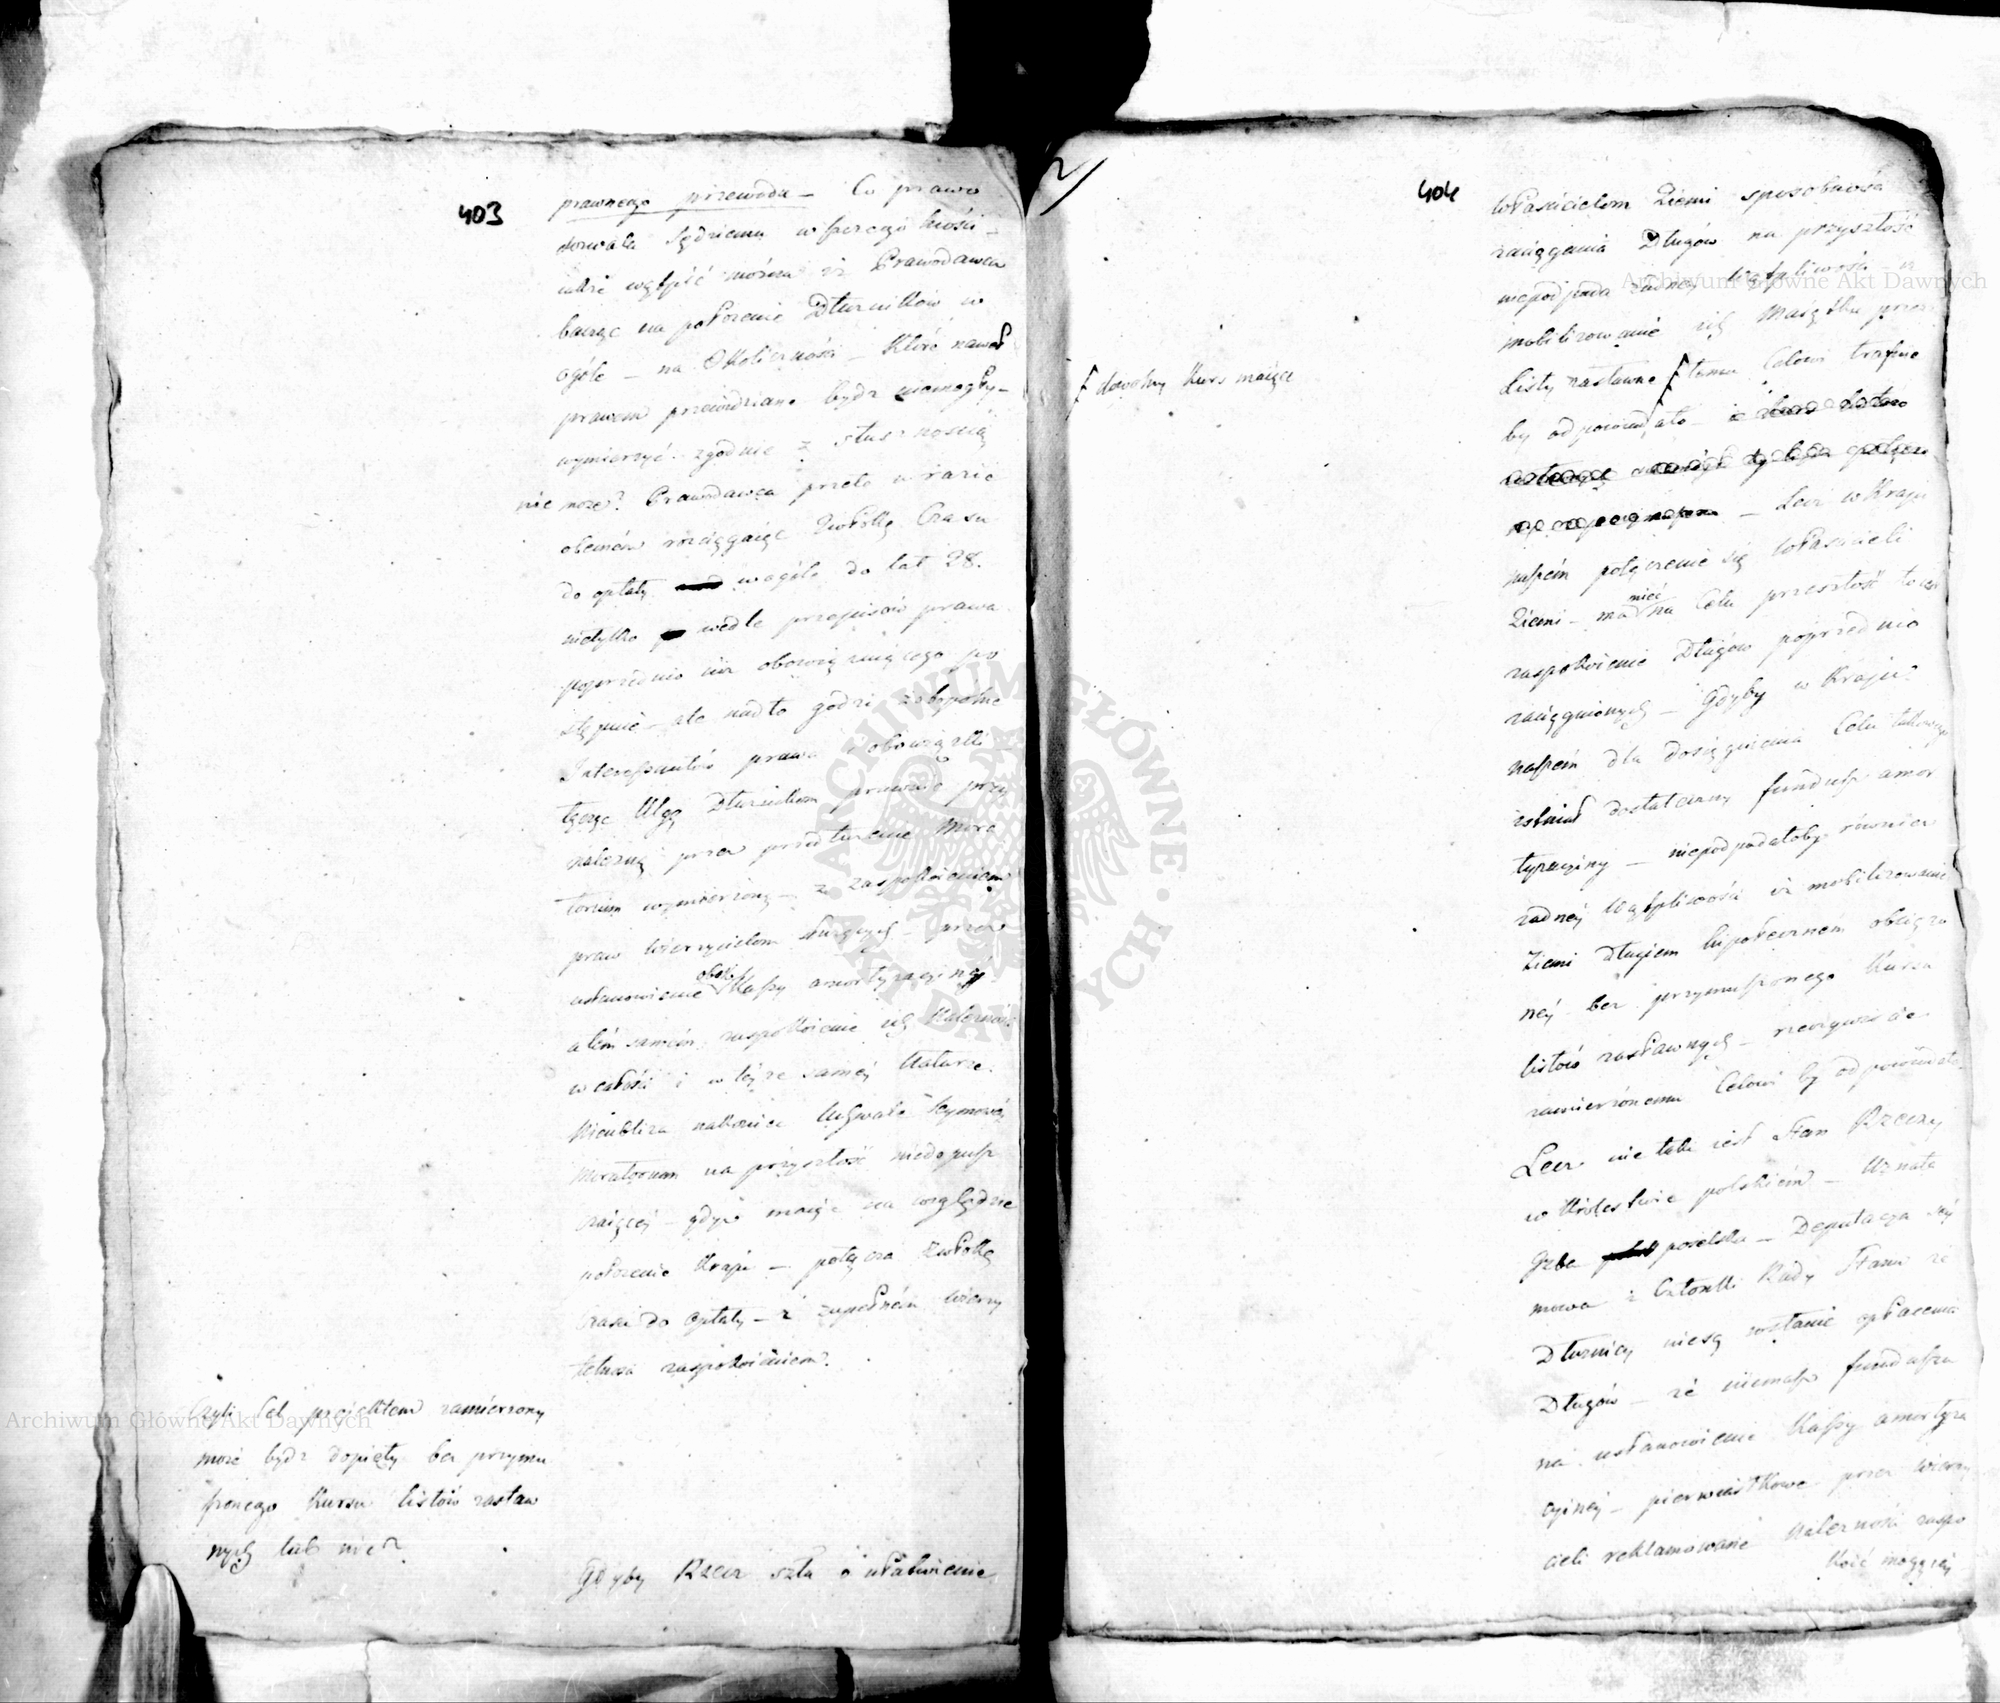 403
prawnego przewodu — Co prawo
dozwala Sędziemu w szczególności —
także wątpić można iż Prawodawca
bacząc na położenie Dłużników w
ogóle — na Okoliczności — które nawet
prawem przewidziane bydź niemogły —
wymierzyć zgodnie z słusznością
nie może? Prawodawca przeto w razie
obecnem rozciągając zwłokę Czasu
do opłaty w ogóle do lat 28.
nietylko wedle przepisów prawa
poprzednio iuż obowiązuiącego po
stępuie — ale nadto godzi zobopólne
Interessantów prawa i obowiązki —
łącząc Ulgę Dłużnikom prawnie przy
należną przez przedłużenie Mora
torium wymierzoną — z zaspokoieniem
praw Wierzycielom służących — przez
ustanowienie obok Kassy amortyzacyinéy
a tém samém zaspokoienie ich Należności
w całości i w téyże saméy Naturze.
Nieubliża nakoniec Uchwale Seymowéy
Moratorium na przyszłość niedopusz
czaiącéy — gdyż maiąc na względzie
położenie Kraju — połącza zwłokę
Czasu do opłaty — z zupełném Wierzy
ciela zaspokoieniem.
Czyli Cel projektem zamierzony
może bydź dopięty bez przymu
szonego Kursu listów zastaw
nych lub nie?
Gdyby Rzecz szła o ułatwienie
404
Właścicielom Ziemi sposobności
zaciągania Długów na przyszłość
niepodpada żadnéy wątpliwości iż
mobilizowanie ich Maiątku przez
Listy zastawne temu Celowi trafnie
by odpowiadało —
dowolny Kurs maiące
— Lecz w Kraju
naszém połączenie się Właścicieli
Ziemi — ma mieć na Celu przeszłość to iest
zaspokoienie Długów poprzednio
zaciągnionych — Gdyby w Kraju
naszém dla dosiągnienia Celu takowego
istniał dostateczny fundusz amor
tyzacyiny — niepodpadałoby również
żadnéy Wątpliwości iż mobilizowanie
Ziemi Długiem hipotecznem obciążo
néy bez przymuszonego Kursu
listów zastawnych — rzeczywiście
zamierzonemu Celowi by odpowiadało.
Lecz nie taki iest Stan Rzeczy
w Królestwie polskiém — Uznała
Izba poselska — Deputacya Sey
mowa i Członki Rady Stanu że
Dłużnicy niesą w stanie opłacenia
Długów — że niemasz funduszu
na ustanowienie Kassy amortyza
cyinéy — pierwiastkowo przez Wierzy
cieli reklamowane Należności zaspo
koić mogącéy